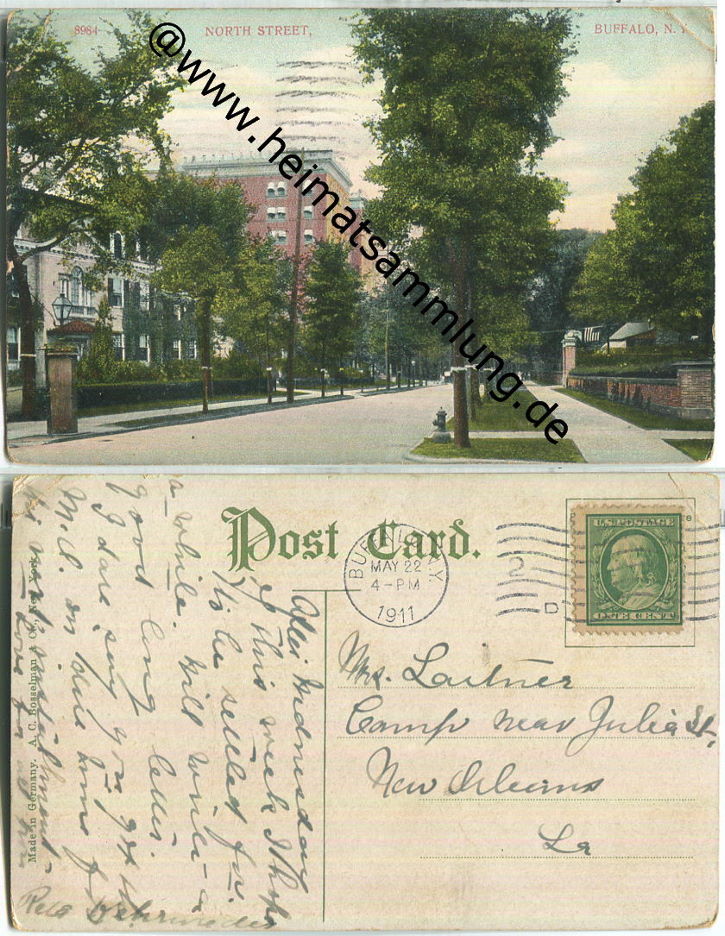 8984
NORTH STREET,
BUFFALO, N. Y.
@www.heimatsammlung.de
Post Card.
BUFFALO, N.Y.
MAY 22
4-PM
1911
D
U.S. POSTAGE
ONE CENT
Mrs. Laitner
Camp near Julia St.
New Orleans
La
After Wednesday
of this week I hope
to be settled for
a while. Will write a
good long letter.
I dare say you got the
M.O. in due time for
his next installment
Love
Made in Germany. A. C. Bosselman & Co., New York